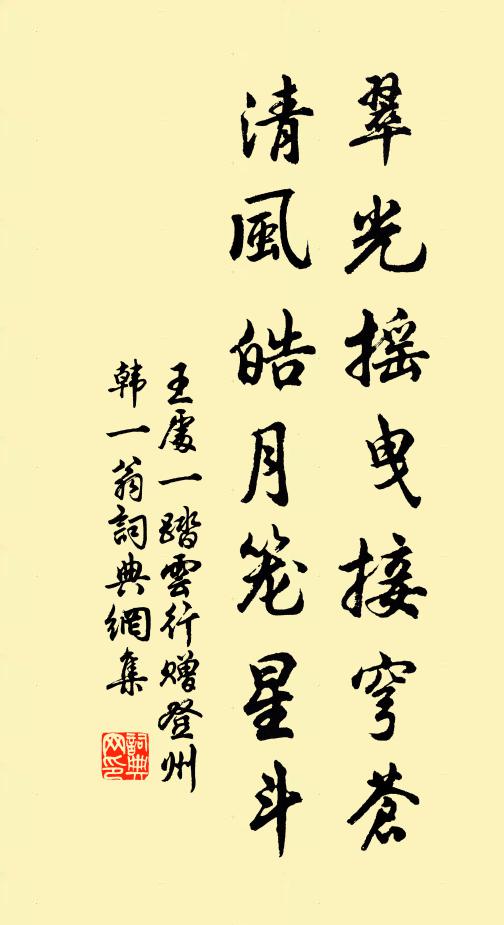 翠光摇曳接穹苍
清風皓月笼星斗
王處一踏雲行赠登州
韩一翁詞典網集
詞典網印